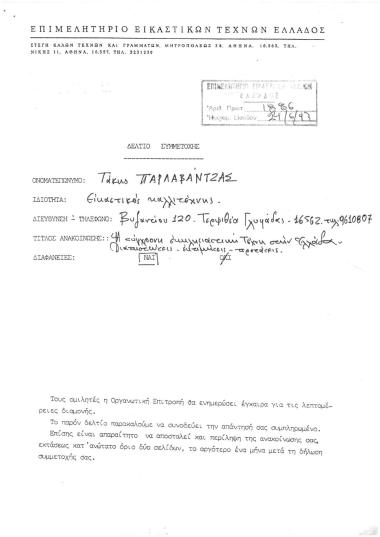 ΕΠΙΜΕΛΗΤΗΡΙΟ ΕΙΚΑΣΤΙΚΩΝ ΤΕΧΝΩΝ ΕΛΛΑΔΟΣ
ΣΤΕΓΗ ΚΑΛΩΝ ΤΕΧΝΩΝ ΚΑΙ ΓΡΑΜΜΑΤΩΝ, ΜΗΤΡΟΠΟΛΕΩΣ 38, ΑΘΗΝΑ, 10.563, ΤΗΛ.
ΝΙΚΗΣ 11, ΑΘΗΝΑ, 10.557, ΤΗΛ. 3231230
ΕΠΙΜΕΛΗΤΗΡΙΟ
ΕΛΛΑΔΟΣ
Αριθ. Πρωτ. 1886
21/6/93
ΔΕΛΤΙΟ ΣΥΜΜΕΤΟΧΗΣ
ΟΝΟΜΑΤΕΠΩΝΥΜΟ: Τάκης ΠΑΡΛΑΒΑΝΤΖΑΣ
ΙΔΙΟΤΗΤΑ: Εικαστικός καλλιτέχνης.
ΔΙΕΥΘΥΝΣΗ - ΤΗΛΕΦΩΝΟ: Βυζαντίου 120 - Τερψιθέα Γλυφάδας - 16562 - τηλ 9610807
ΤΙΤΛΟΣ ΑΝΑΚΟΙΝΩΣΗΣ: Η σύγχρονη εκκλησιαστική Τέχνη στην Ελλάδα.
Διαπιστώσεις - - προτάσεις.
ΔΙΑΦΑΝΕΙΕΣ: ΝΑΙ ΟΧΙ
Τους ομιλητές η Οργανωτική Επιτροπή θα ενημερώσει έγκαιρα για τις λεπτομέ-
ρειες διαμονής.
Το παρόν δελτίο παρακαλούμε να συνοδεύει την απάντησή σας συμπληρωμένο.
Επίσης είναι απαραίτητο να αποσταλεί και περίληψη της ανακοίνωσης σας,
εκτάσεως κατ' ανώτατο όριο δύο σελίδων, το αργότερο ένα μήνα μετά τη δήλωση
συμμετοχής σας.